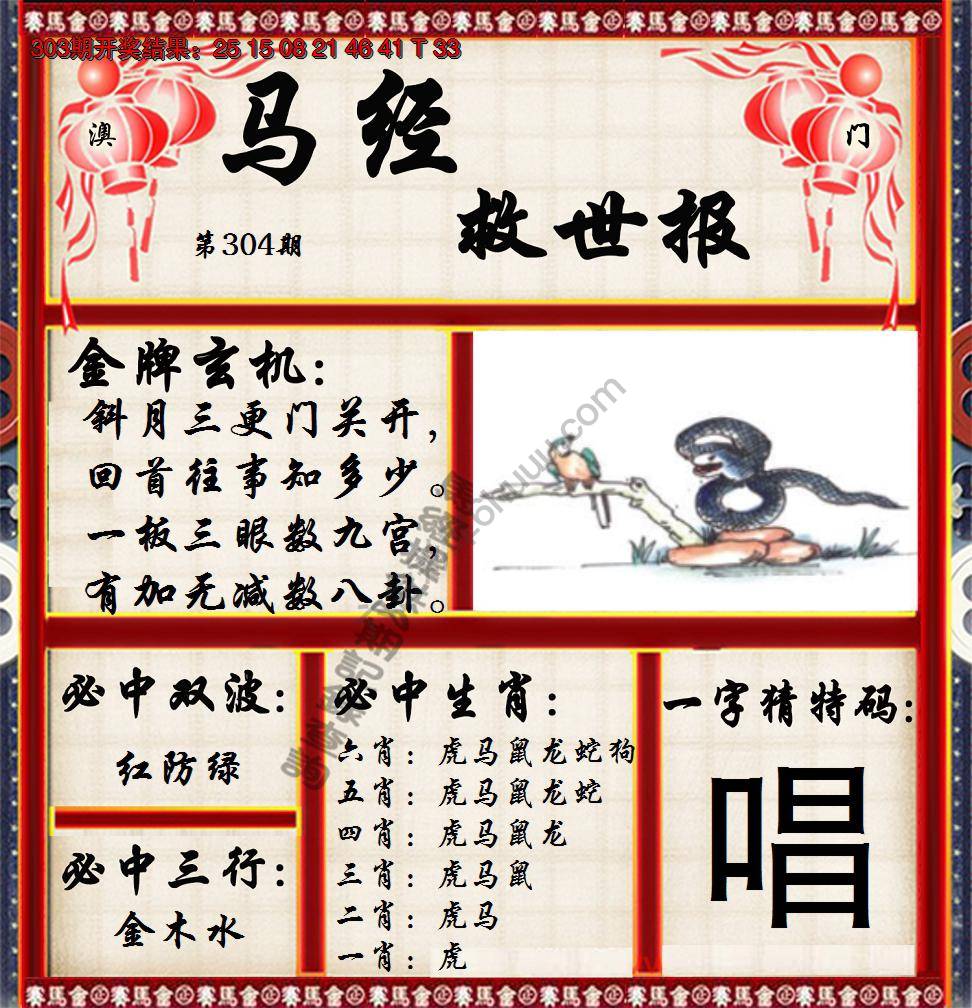 303期开奖结果：25 15 08 21 46 41 T 33
澳
门
马经
救世报
第304期
金牌玄机：
斜月三更门关开，
回首往事知多少。
一板三眼数九宫，
有加无减数八卦。
必中双波：
红防绿
必中三行：
金木水
必中生肖：
六肖：虎马鼠龙蛇狗
五肖：虎马鼠龙蛇
四肖：虎马鼠龙
三肖：虎马鼠
二肖：虎马
一肖：虎
一字猜特码：
唱